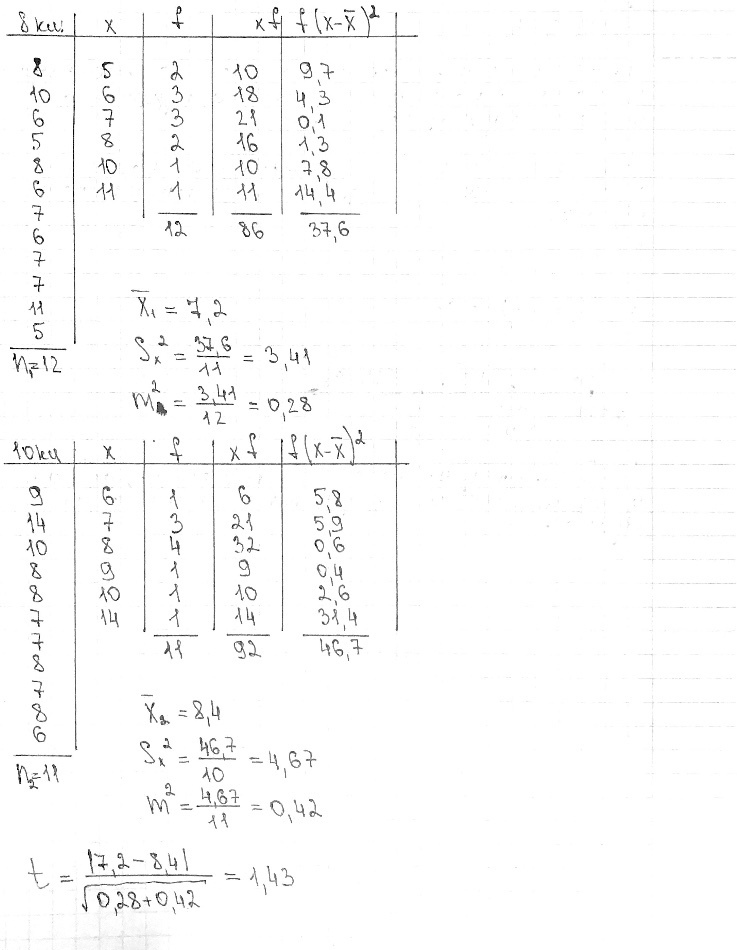 8 км. x f xf f(x-x̄)²
8 5 2 10 9,7
10 6 3 18 4,3
6 7 3 21 0,1
5 8 2 16 1,3
8 10 1 10 7,8
6 11 1 11 14,4
7 12 86 37,6
6
7
7
11
5
n₁=12
x̄₁ = 7,2
Sₓ² = 37,6/11 = 3,41
m² = 3,41/12 = 0,28
10 км x f xf f(x-x̄)²
9 6 1 6 5,8
14 7 3 21 5,9
10 8 4 32 0,6
8 9 1 9 0,4
8 10 1 10 2,6
7 14 1 14 31,4
7 11 92 46,7
8
7
8
6
n₂=11
x̄₂ = 8,4
Sₓ² = 46,7/10 = 4,67
m² = 4,67/11 = 0,42
t = |7,2 - 8,4|/√0,28+0,42 = 1,43